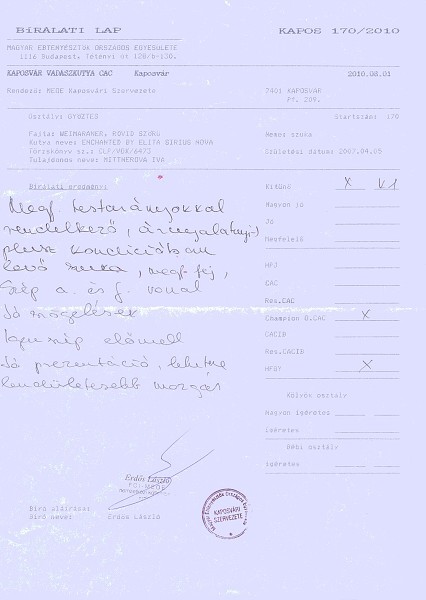 BíRÁLATI LAP KAPOS 170/2010
MAGYAR EBTENYÉSZTŐK ORSZÁGOS EGYESÜLETE
1116 Budapest, Tétényi út 128/b-130.
KAPOSVÁR VADÁSZKUTYA CAC Kaposvár 2010.08.01
Rendező: MEOE Kaposvári Szervezete 7401 KAPOSVÁR
Pf. 200.
Osztály: GYŐZTES Startszám: 170
Fajta: WEIMARANER, RÖVID SZŐRŰ Neme: szuka
Kutya neve: ENCHANTED BY ELITA SIRIUS NOVA
Törzskönyv sz.: CLP/VDK/6472 Születési dátum: 2007.04.05
Tulajdonos neve: MITTNEROVA IVA
Bírálati eredmény:
Megf. testarányokkal
rendelkező,
plusz kondícióban
levő szuka, megf. fej,
szép a. és f. vonal
Jó szögelések
szép előmell
Jó prezentáció, lehetne
lendületesebb mozgás
Kitűnő X V1
Nagyon jó
Jó
Megfelelő
HPJ
CAC
Res.CAC
Champion O.CAC X
CACIB
Res.CACIB
HFGY X
Kölyök osztály
Nagyon ígéretes
ígéretes
Bébi osztály
ígéretes
Erdős László
Bíró aláírása:
Bíró neve: Erdős László
KAPOSVÁRI
SZERVEZETE